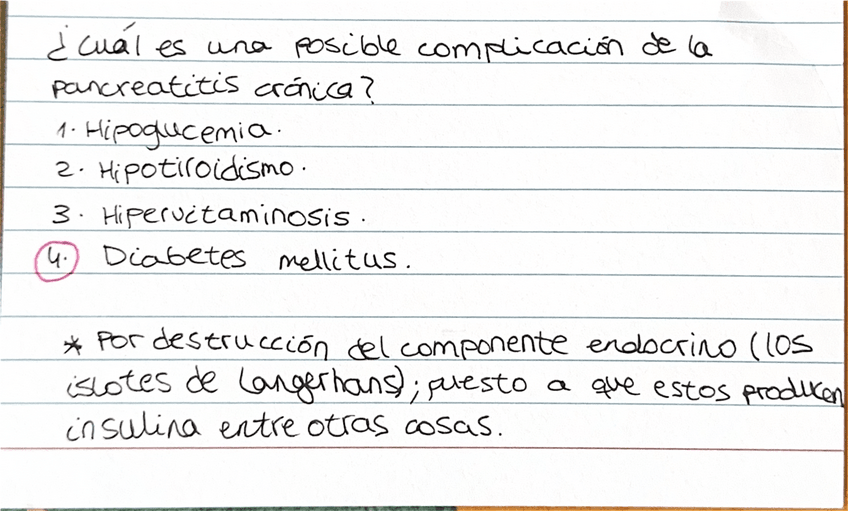 ¿Cuál es una posible complicación de la
pancreatitis crónica?
1. Hipoglucemia.
2. Hipotiroidismo.
3. Hipervitaminosis.
4. Diabetes mellitus.
* Por destrucción del componente endocrino (los
islotes de Langerhans); puesto a que estos producen
insulina entre otras cosas.